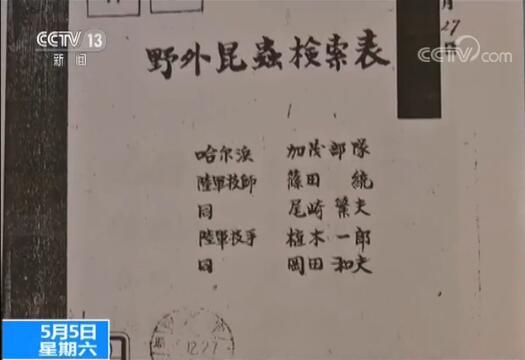 CCTV 13
新闻
CCTV.com
月27
野外昆蟲検索表
哈尔浜 加茂部隊
陸軍技師 篠田 統
同 尾崎 繁夫
陸軍技手 植木 一郎
同 岡田 和夫
12.27
5月5日
星期六